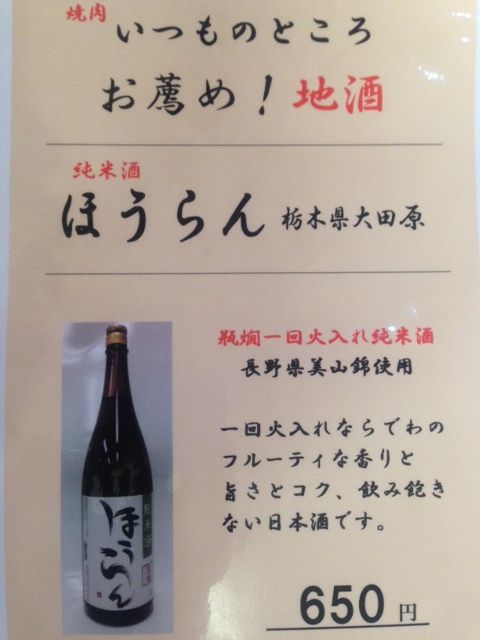 焼肉
いつものところ
お薦め！地酒
純米酒
ほうらん 栃木県大田原
瓶燗一回火入れ純米酒
長野県美山錦使用
一回火入れならでわの
フルーティな香りと
旨さとコク、飲み飽き
ない日本酒です。
純米酒
ほうらん
650円